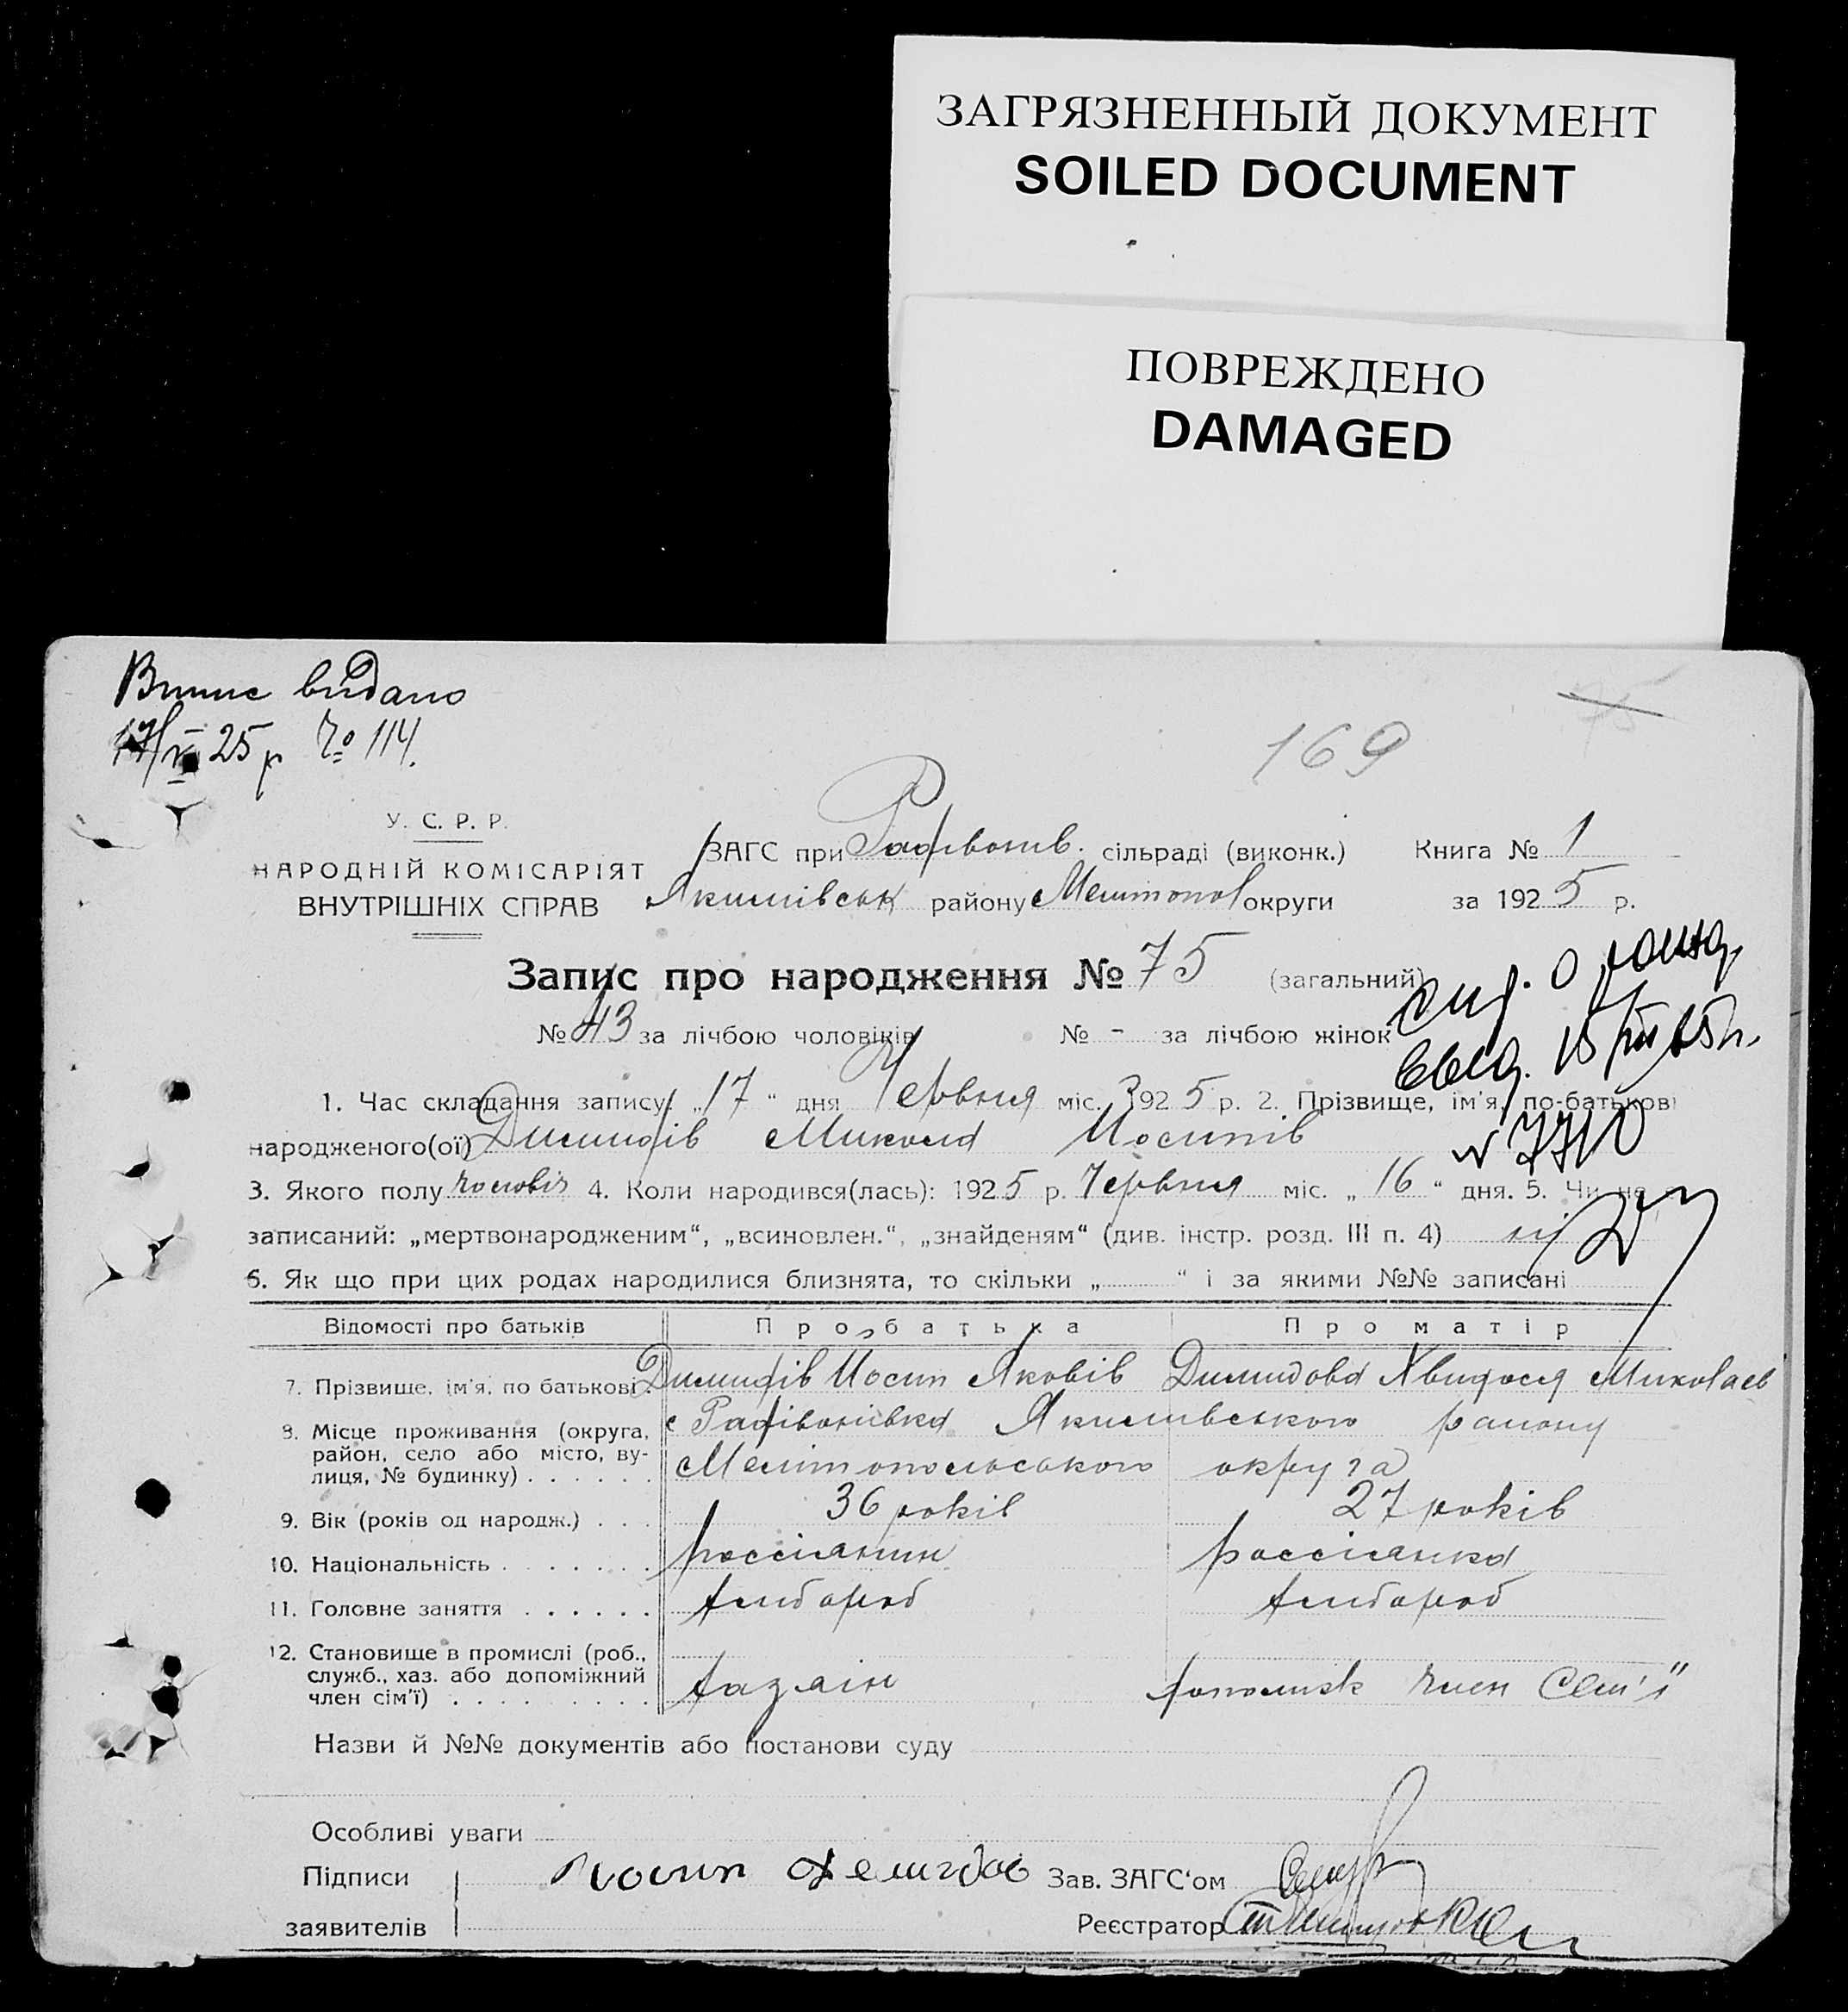 ЗАГРЯЗНЕННЫЙ ДОКУМЕНТ
SOILED DOCUMENT
ПОВРЕЖДЕНО
DAMAGED
Випис видано
17/VI 25 р № 114.
75
169
У. С. Р. Р.
НАРОДНІЙ КОМІСАРІЯТ
ВНУТРІШНІХ СПРАВ
ЗАГС при Радівонів. сільраді (виконк.) Книга № 1
Якимівськ району Мелітопол округи за 1925 р.
Запис про народження № 75 (загальний)
№ 43 за лічбою чоловіків № - за лічбою жінок
1. Час складання запису: „17“ дня Червня міс. 1925 р. 2. Прізвище, ім'я, по-батькові
народженого(ої) Димидів Микола Йосипів
№ 7710
3. Якого полу чоловіч 4. Коли народився(лась): 1925 р. Червня міс. „16“ дня. 5. Чи не є
записаний: „мертвонародженим“, „всиновлен.“, „знайденям“ (див. інстр. розд. III п. 4) ні
6. Як що при цих родах народилися близнята, то скільки „ “ і за якими №№ записані
Відомості про батьків Про батька Про матір
7. Прізвище, ім'я, по батькові Димидів Йосип Яковів Димидова Хвидося Миколаєв
8. Місце проживання (округа, район, село або місто, вулиця, № будинку) с Радівонівка Якимівського району
Мелітопольського округа
9. Вік (років од народж.) 36 років 27 років
10. Національність россіянин россіянка
11. Головне заняття хлібороб хлібороб
12. Становище в промислі (роб., служб., хаз. або допоміжний член сім'ї) хазяін допоміжк член сем'ї
Назви й №№ документів або постанови суду
Особливі уваги
Підписи заявителів Иосип Демидов Зав. ЗАГС'ом
Реєстратор